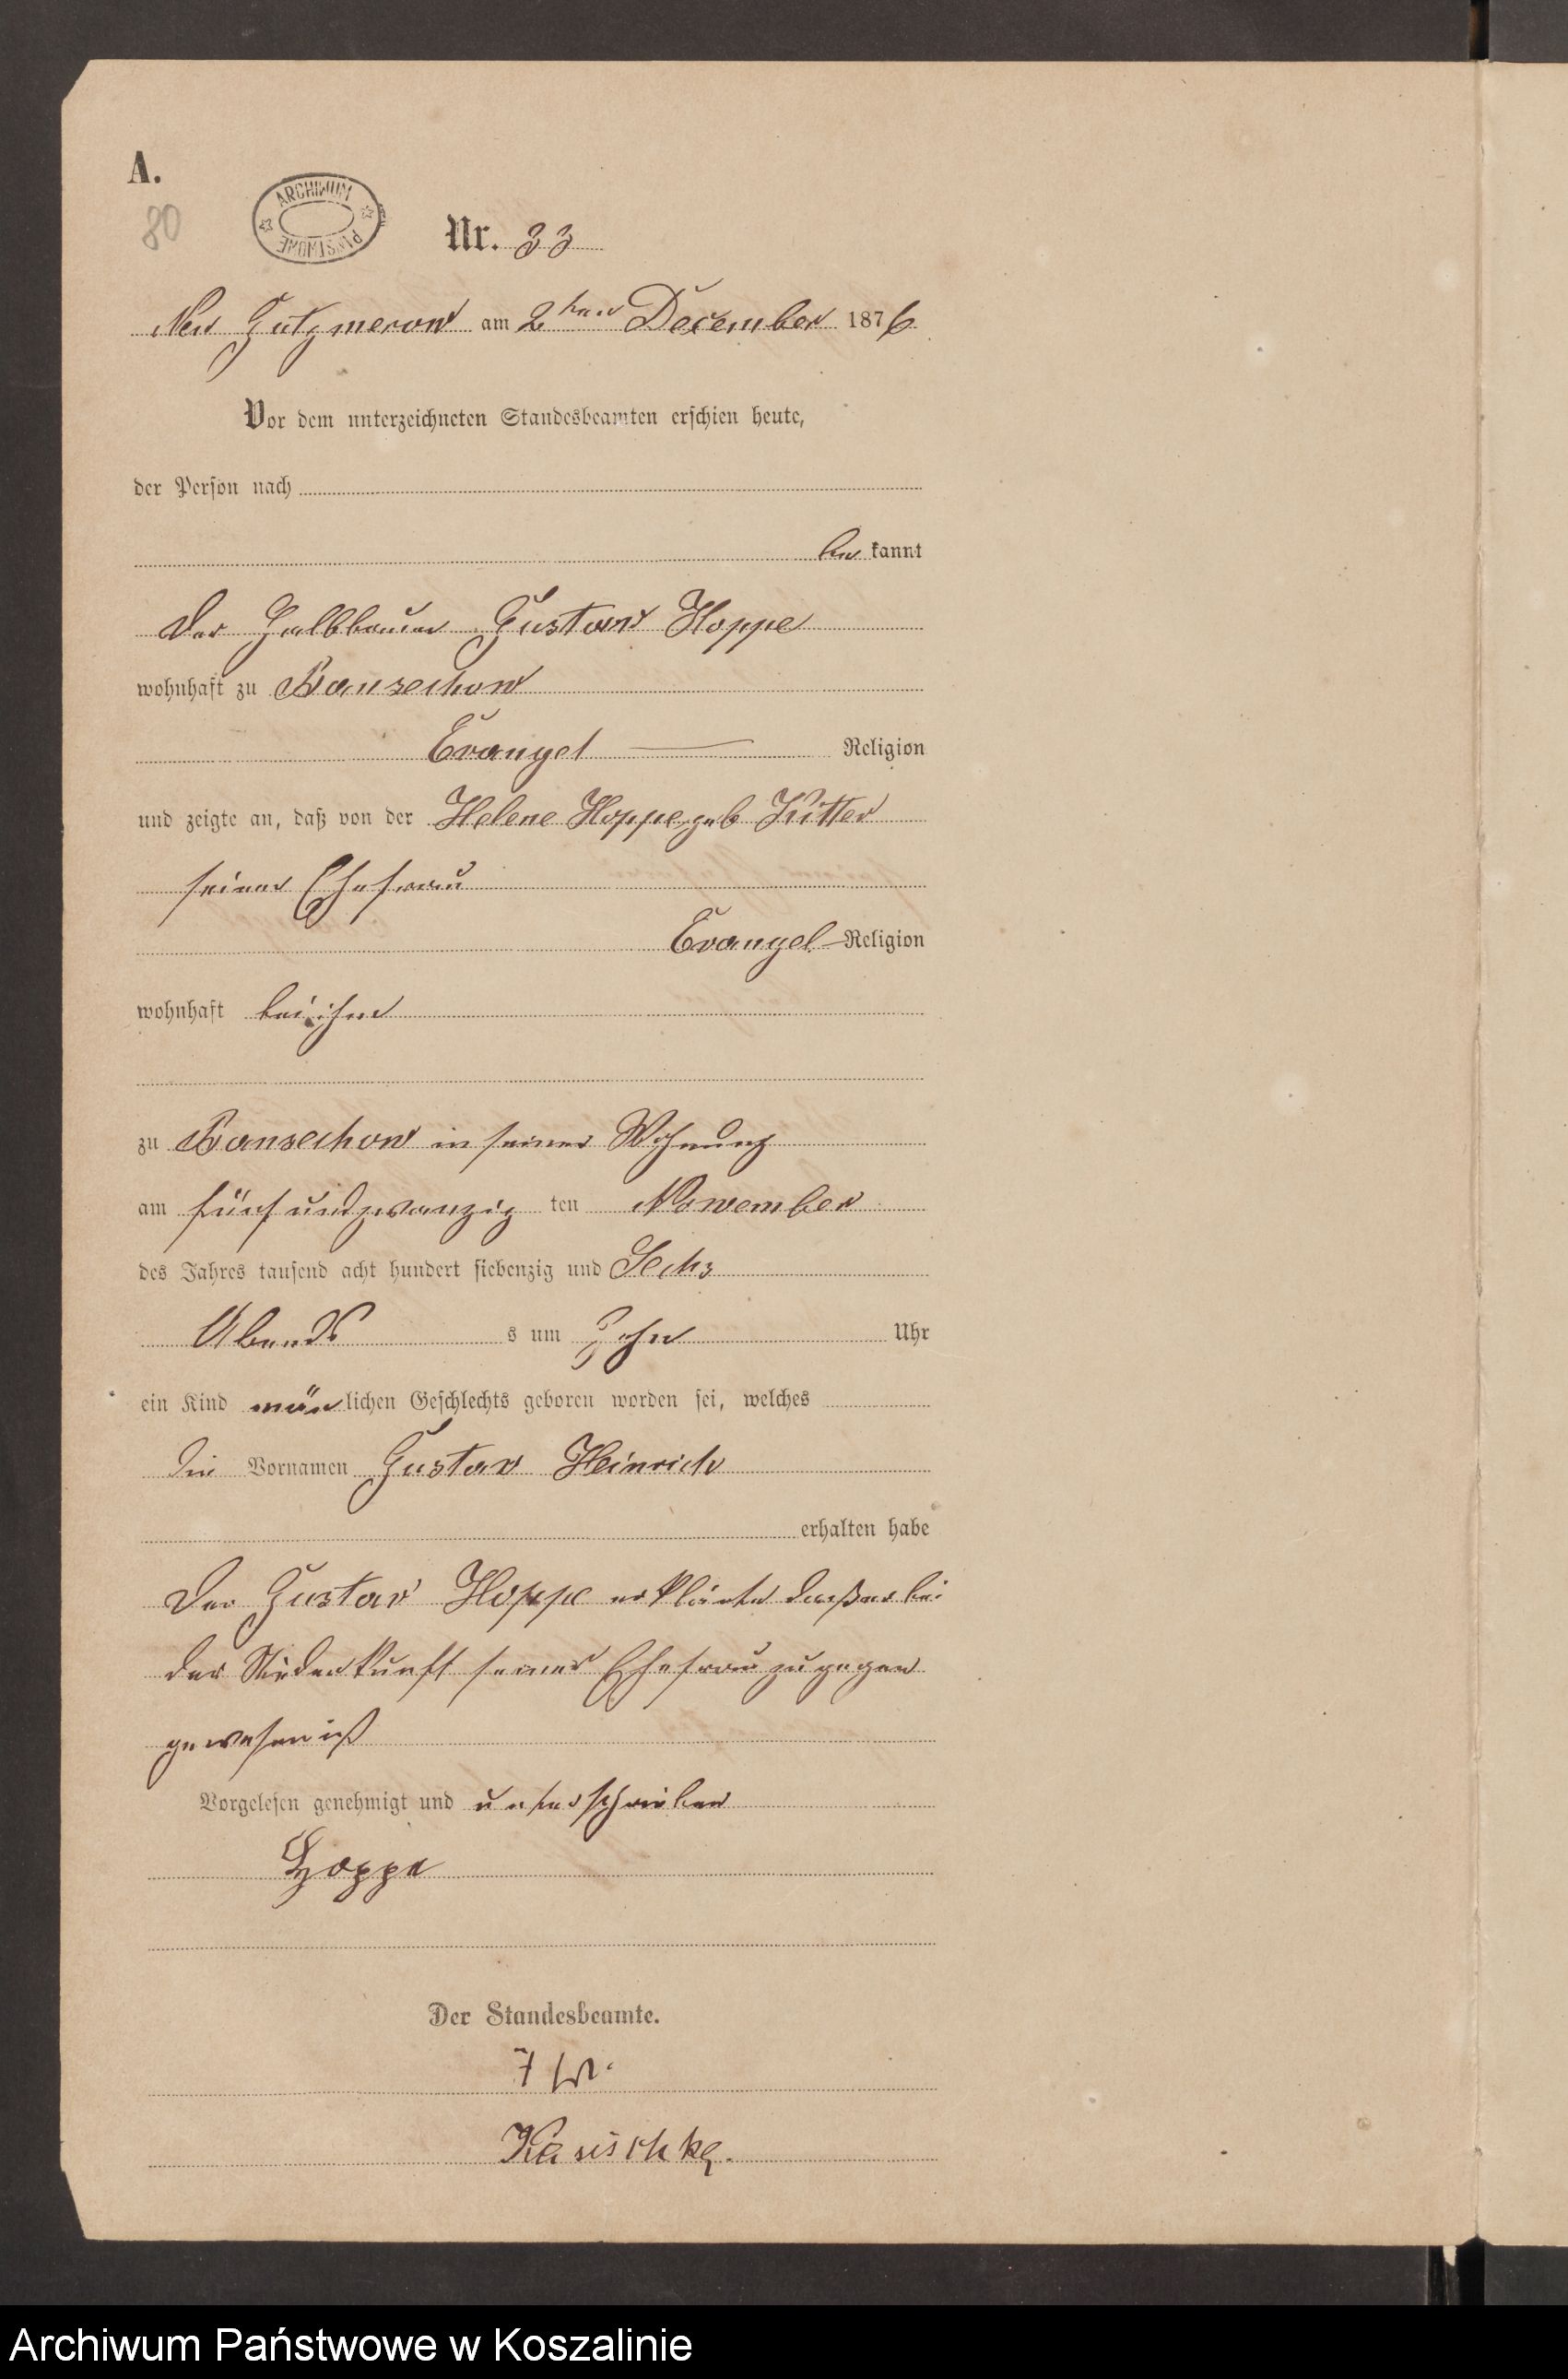 A.
80
ARCHIWUM PAŃSTWOWE
Nr. 33
Neu Gutzmerow am 2ten December 1876
Vor dem unterzeichneten Standesbeamten erschien heute,
der Person nach
be kannt
der Halbbauer Gustaw Hoppe
wohnhaft zu Bansechow
Evangel Religion
und zeigte an, daß von der Helene Hoppe geb Kütter
seiner Ehefrau
Evangel Religion
wohnhaft bei ihm
zu Bansechow in seiner Wohnung
am fünfundzwanzig ten Nowember
des Jahres tausend acht hundert siebenzig und Sechs
Abends s um Zehn Uhr
ein Kind män lichen Geschlechts geboren worden sei, welches
die Vornamen Gustav Heinrich
erhalten habe
Der Gustav Hoppe erklärte daß er bei
der Niederkunft seiner Ehefrau zugegen
gewesen ist
Vorgelesen genehmigt und unterschrieben
Hoppe
Der Standesbeamte.
Archiwum Państwowe w Koszalinie